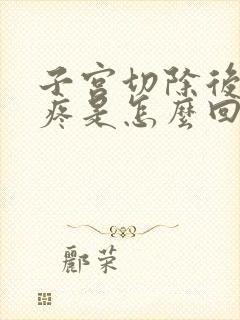 子宮切除後
疼是怎麼回
酈榮